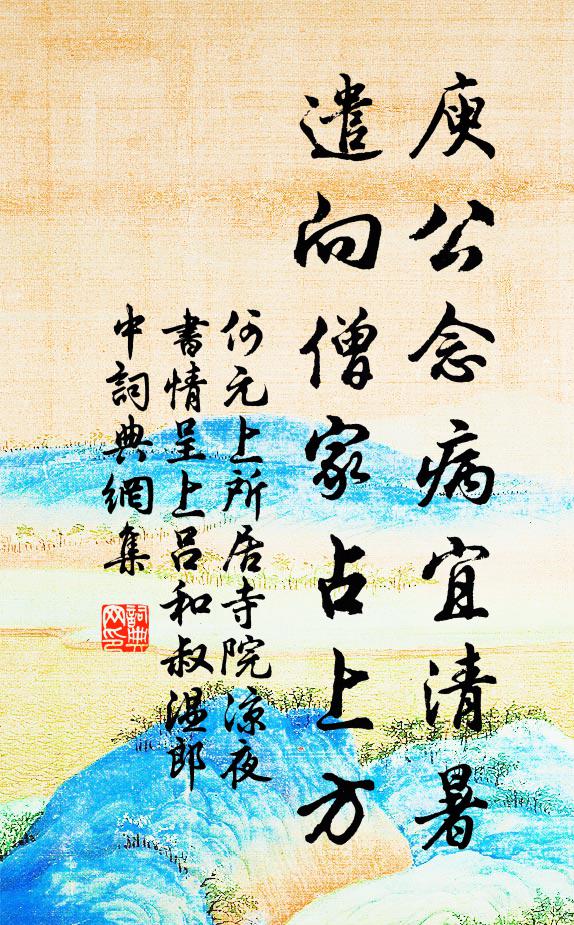 庾公念病宜清暑
遣向僧家占上方
何元上所居寺院凉夜
書情呈上吕和叔温郎
中詞典網集
詞典
网印